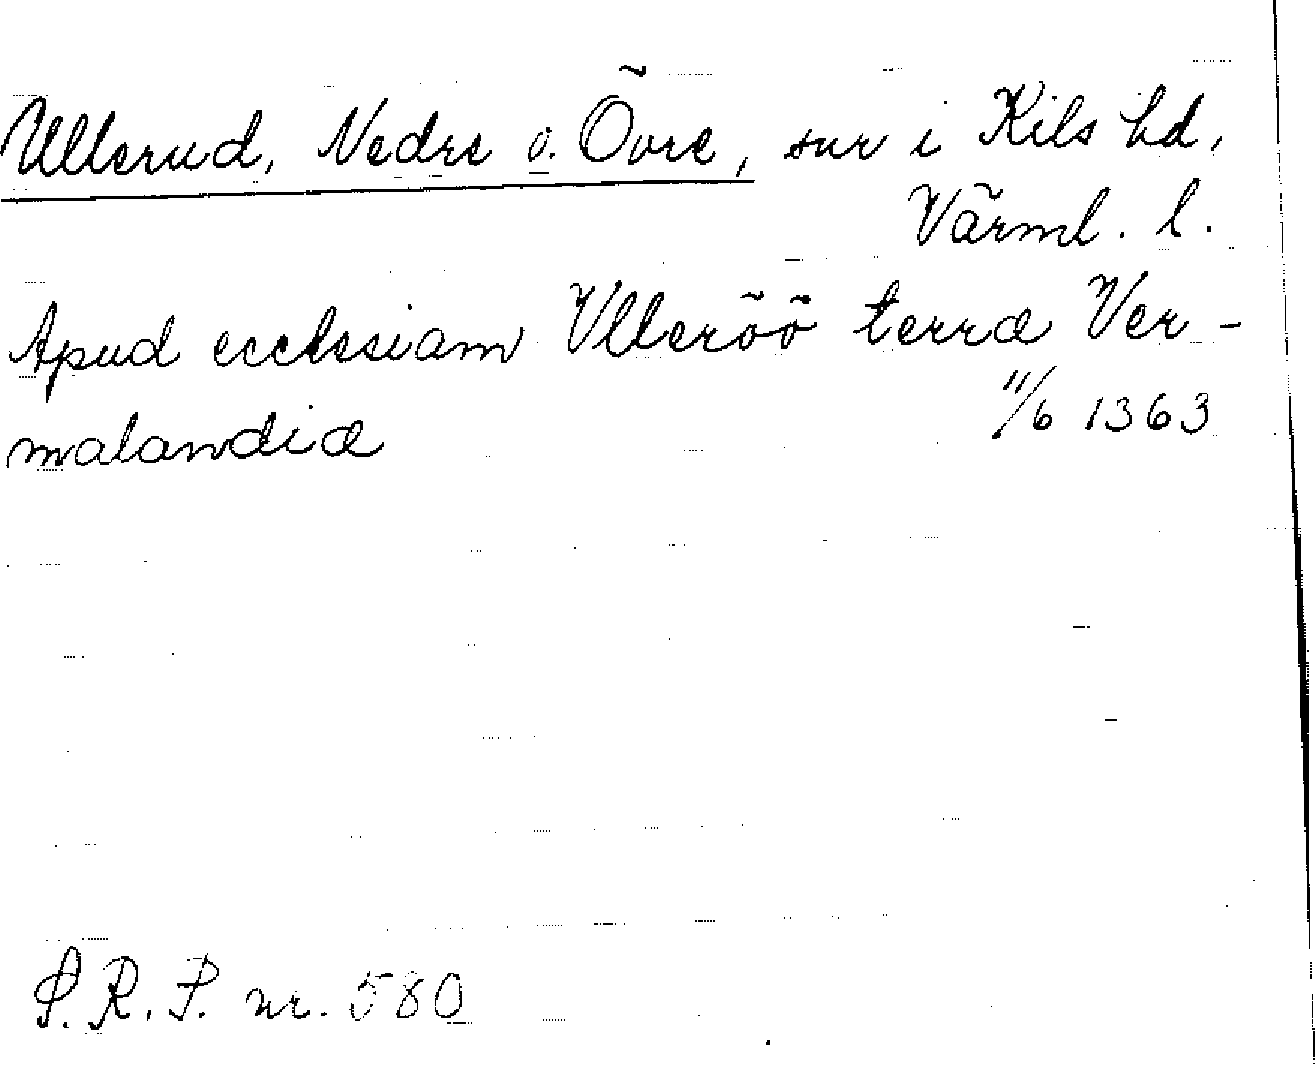 Ullerud, Nedre o. Övre, snr i Kils hd,
Värml. l.
Apud ecclesiam Vlleröö terræ Ver-
malandiæ 11/6 1363
S. R. P. nr. 580